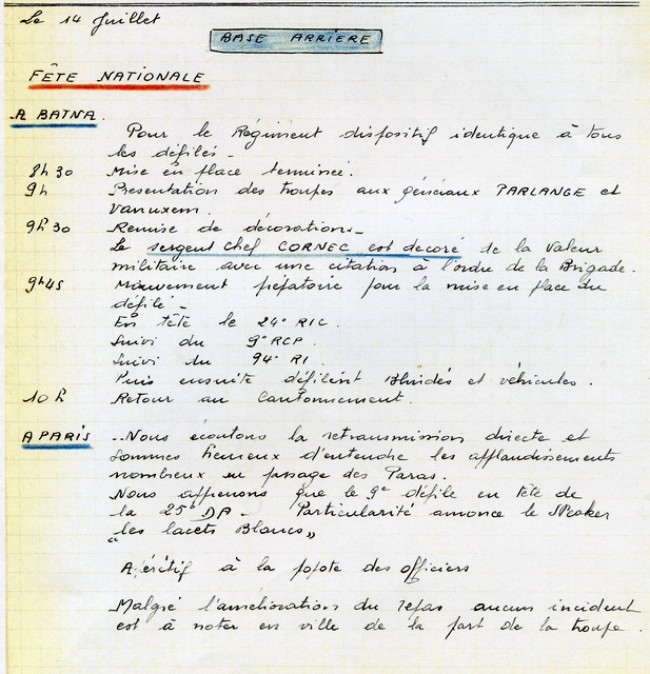 Le 14 Juillet
BASE ARRIERE
FÊTE NATIONALE
A BATNA.
Pour le Régiment dispositif identique à tous
les défilés -
8h 30 Mise en place terminée.
9h Présentation des troupes aux généraux PARLANGE et
Vanuxem.
9h 30 Remise de décorations -
Le sergent chef CORNEC est décoré de la Valeur
militaire avec une citation à l'ordre de la Brigade.
9h45 Mouvement préparatoire pour la mise en place du
défilé -
En tête le 24e RIC.
Suivi du 9e RCP.
Suivi du 94e RI
Puis ensuite défilent Blindés et véhicules.
10 h Retour au Cantonnement.
A PARIS ..Nous écoutons la retransmission directe et
sommes heureux d'entendre les applaudissements
nombreux au passage des Paras.
Nous apprenons que le 9e défile en tête de
la 25e DA - Particularité annonce le Speaker
"les lacets Blancs"
Apéritif à la popote des officiers
Malgré l'améliorations du repas aucun incident
est à noter en ville de la part de la troupe.